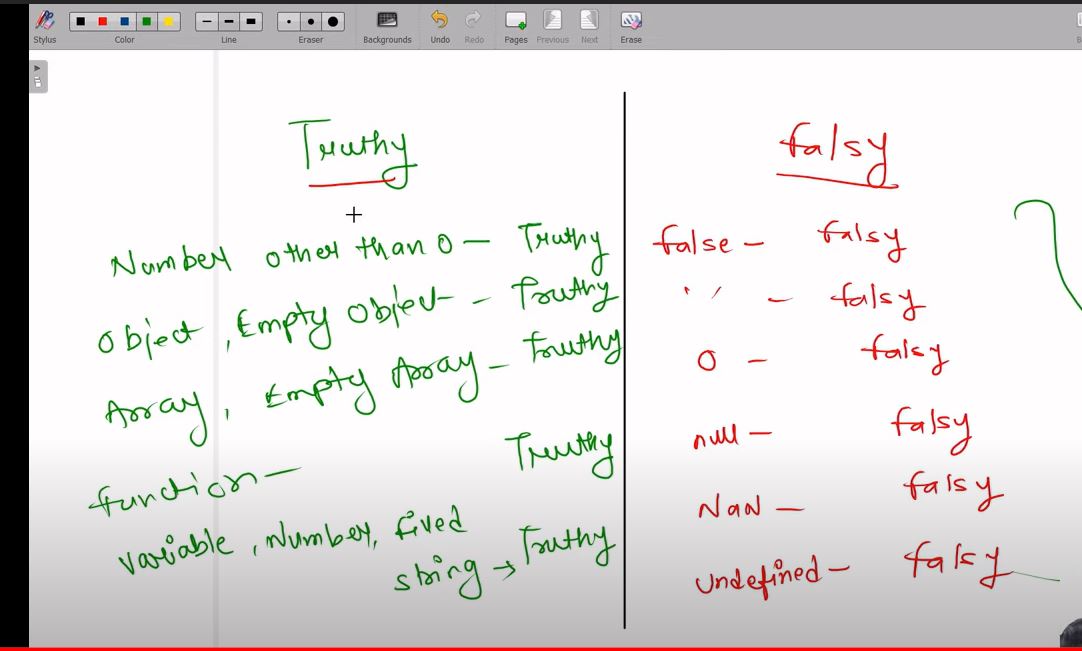 Stylus
Color
Line
Eraser
Backgrounds
Undo
Redo
Pages
Previous
Next
Erase
Truthy
Number other than 0 - Truthy
Object, Empty Object - Truthy
Array, Empty Array - Truthy
function - Truthy
Variable, Number, fixed
string → Truthy
falsy
false - falsy
' ' - falsy
0 - falsy
null - falsy
NaN - falsy
Undefined - falsy